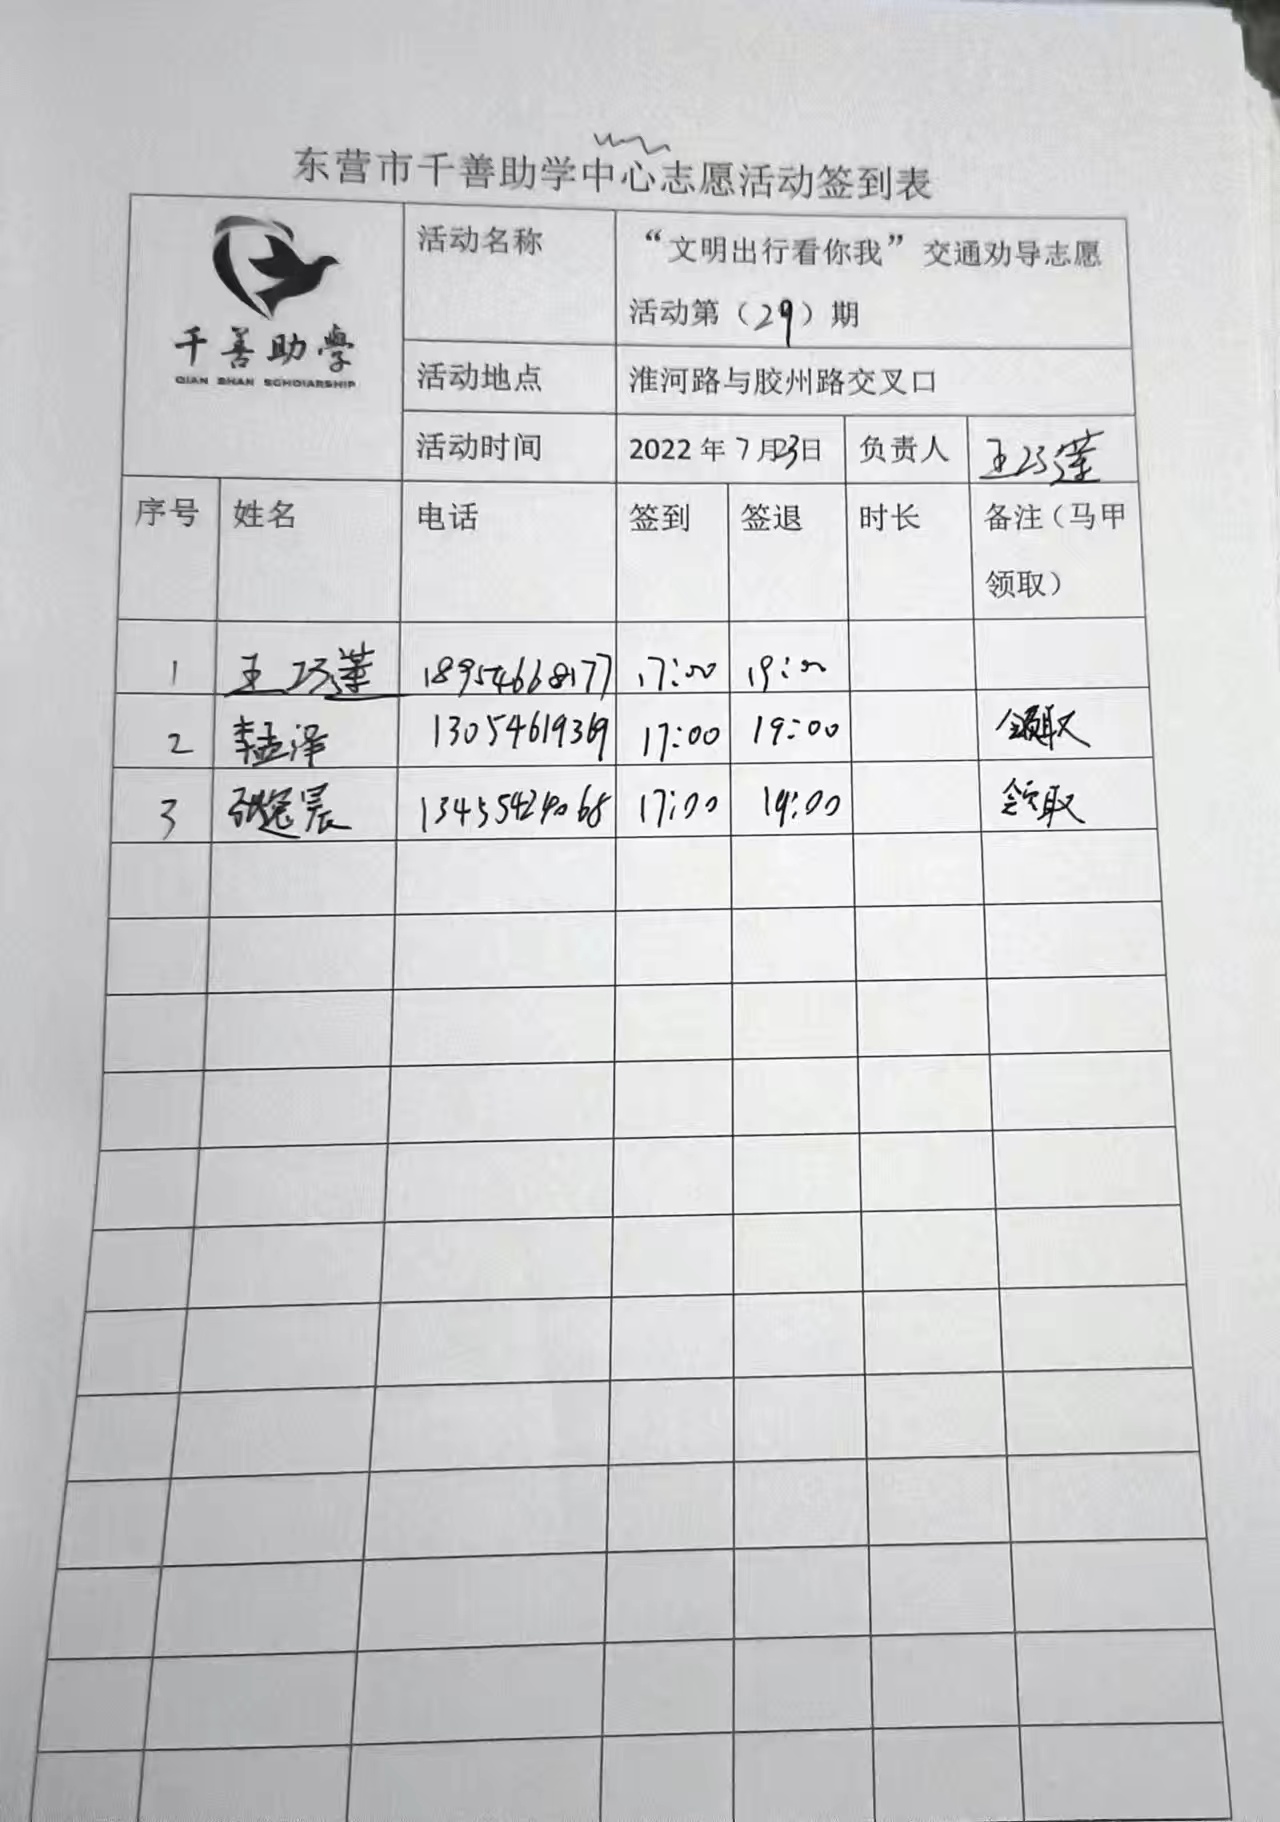 东营市千善助学中心志愿活动签到表
千善助学
QIAN SHAN SCHOLARSHIP
活动名称
“文明出行看你我”交通劝导志愿
活动第（29）期
活动地点
淮河路与胶州路交叉口
活动时间
2022年7月23日
负责人
王巧莲
序号 姓名 电话 签到 签退 时长 备注（马甲
领取）
1 王巧莲 18954668177 17:00 19:00
2 李孟泽 13054619369 17:00 19:00 领取
3 张冠晨 13455424068 17:00 19:00 领取